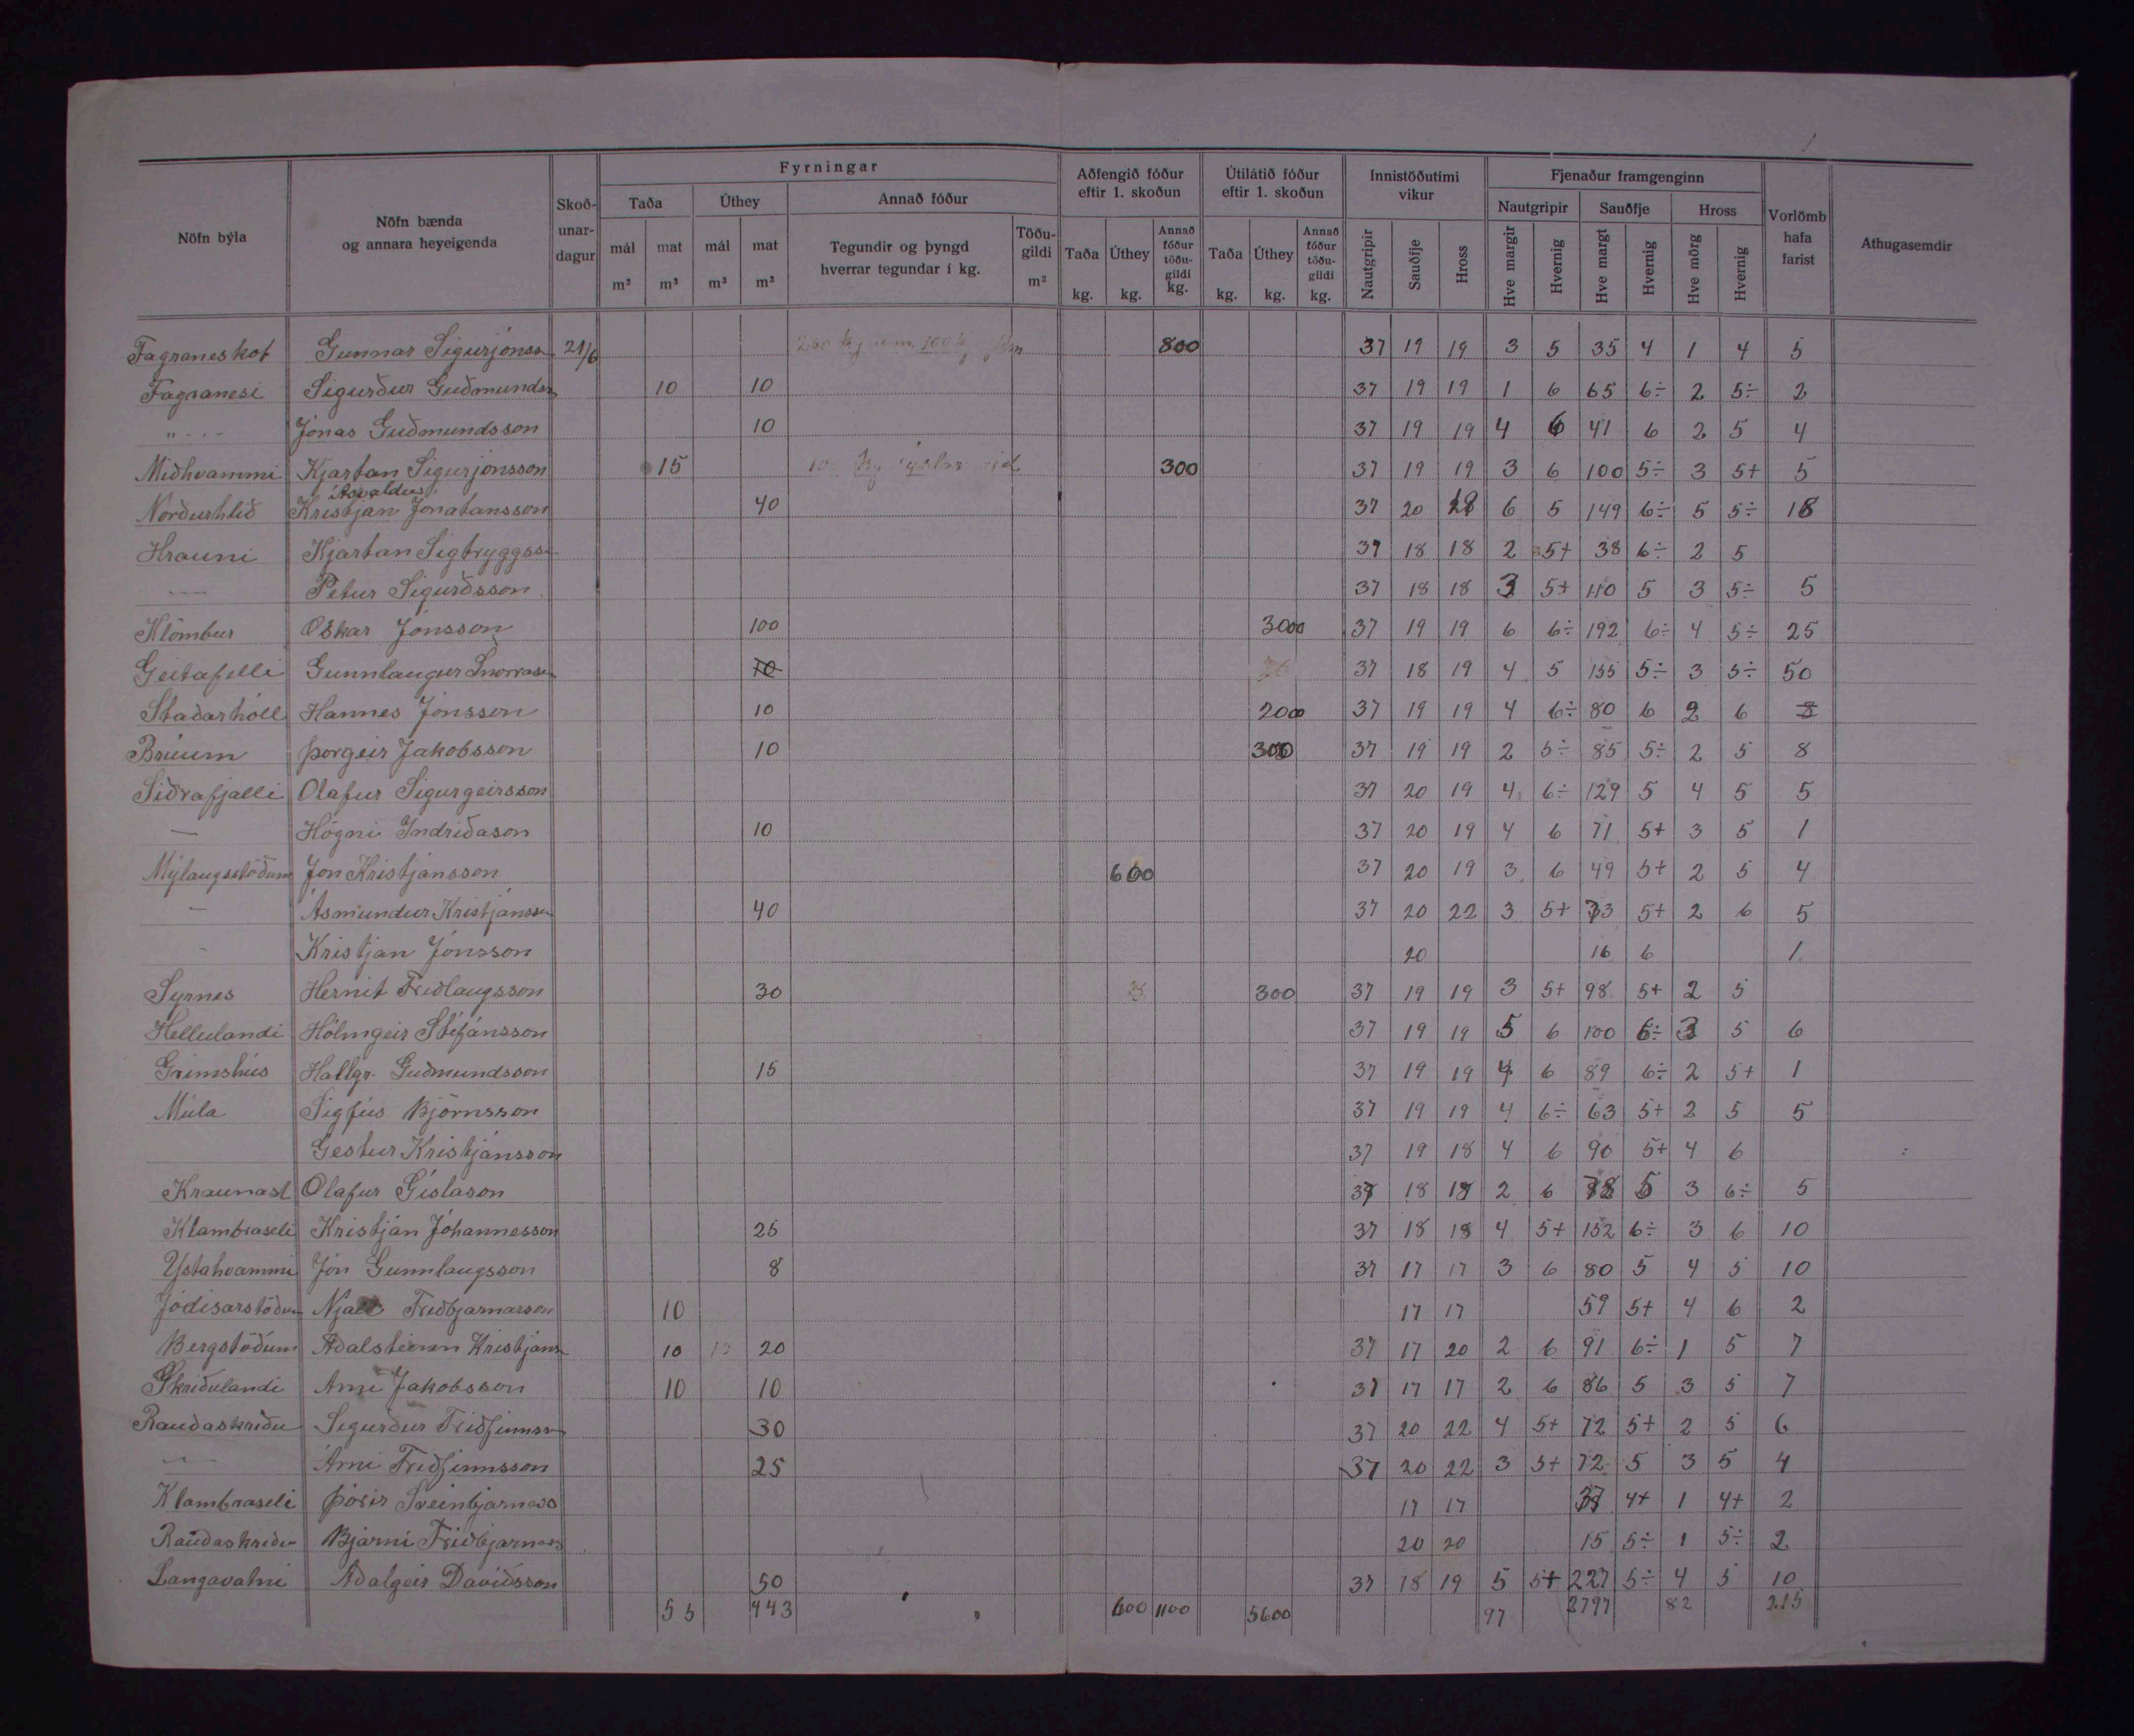 Fyrningar
Aðfengið fóður eftir 1. skoðun
Útilátið fóður eftir 1. skoðun
Innistöðutími vikur
Fjenaður framgenginn
Nöfn býla
Nöfn bænda og annara heyeigenda
Skoð-unar-dagur
Taða
Úthey
Annað fóður
Nautgripir
Sauðfje
Hross
Vorlömb hafa farist
Athugasemdir
mál m³
mat m³
mál m³
mat m³
Tegundir og þyngd hverrar tegundar í kg.
Töðu-gildi m³
Taða kg.
Úthey kg.
Annað fóður töðu-gildi kg.
Taða kg.
Úthey kg.
Annað fóður töðu-gildi kg.
Nautgripir
Sauðfje
Hross
Hve margir
Hvernig
Hve margt
Hvernig
Hve mörg
Hvernig
Fagraneskot Gunnar Sigurjónss 21/6 800 37 19 19 3 5 35 4 1 4 5
Fagranesi Sigurður Guðmundss 10 10 37 19 19 1 6 65 6÷ 2 5÷ 2
" - - - Jónas Guðmundsson 10 37 19 19 4 6 41 6 2 5 4
Miðhvammi Kjartan Sigurjónsson 15 300 37 19 19 3 6 100 5÷ 3 5+ 5
Ásvaldur
Norðurhlíð Kristján Jónatansson 40 37 20 6 5 149 6÷ 5 5÷ 18
Hrauni Kjartan Sigtryggss 37 18 18 2 5+ 38 6÷ 2 5
— Petur Sigurðsson 37 18 18 3 5+ 110 5 3 5÷ 5
Klömbur Oskar Jónsson 100 3000 37 19 19 6 6÷ 192 6÷ 4 5÷ 25
Geitafelli Gunnlaugur Snorrason 70 37 18 19 4 5 155 5÷ 3 5÷ 50
Staðarhóll Hannes Jónsson 10 2000 37 19 19 4 6÷ 80 6 2 6 8
Brúum Þorgeir Jakobsson 10 300 37 19 19 2 5÷ 85 5÷ 2 5 8
Síðrafjalli Olafur Sigurgeirsson 37 20 19 4 6÷ 129 5 4 5 5
— Högni Indriðason 10 37 20 19 4 6 71 5+ 3 5 1
Mýlaugsstöðum Jón Kristjánsson 600 37 20 19 3 6 49 5+ 2 5 4
— Ásmundur Kristjánsson 40 37 20 22 3 5+ 73 5+ 2 6 5
- Kristján Jónsson 20 16 6 1
Syrnes Hernit Friðlaugsson 30 300 37 19 19 3 5+ 98 5+ 2 5
Hellulandi Hólmgeir Stefánsson 37 19 19 5 6 100 6÷ 3 5 6
Grímshús Hallgr. Guðmundsson 15 37 19 19 4 6 89 6÷ 2 5+ 1
Múla Sigfús Björnsson 37 19 19 4 6÷ 63 5+ 2 5 5
Gestur Kristjánsson 37 19 18 4 6 90 5+ 4 6
Kraunast Olafur Gíslason 37 18 18 2 6 78 5 3 6÷ 5
Klambraseli Kristján Jóhannesson 25 37 18 18 4 5+ 152 6÷ 3 6 10
Ystahvammi Jón Gunnlaugsson 8 37 17 17 3 6 80 5 4 5 10
Jódísarstöðum Njáll Friðbjarnarson 10 17 17 59 5+ 4 6 2
Bergstöðum Aðalsteinn Kristjáns 10 20 37 17 20 2 6 91 6÷ 1 5 7
Skriðulandi Arni Jakobsson 10 10 37 17 17 2 6 86 5 3 5 7
Rauðaskriðu Sigurður Friðfinnss 30 37 20 22 4 5+ 72 5+ 2 5 6
— Árni Friðfinnsson 25 37 20 22 3 5+ 72 5 3 5 4
Klambraseli Þórir Sveinbjarnars 17 17 4+ 1 4+ 2
Rauðaskriðu Bjarni Friðbjarnars 20 20 15 5÷ 1 5÷ 2
Langavatni Aðalgeir Davíðsson 50 37 18 19 5 5+ 227 5÷ 4 5 10
55 443 600 1100 5600 97 2797 82 215